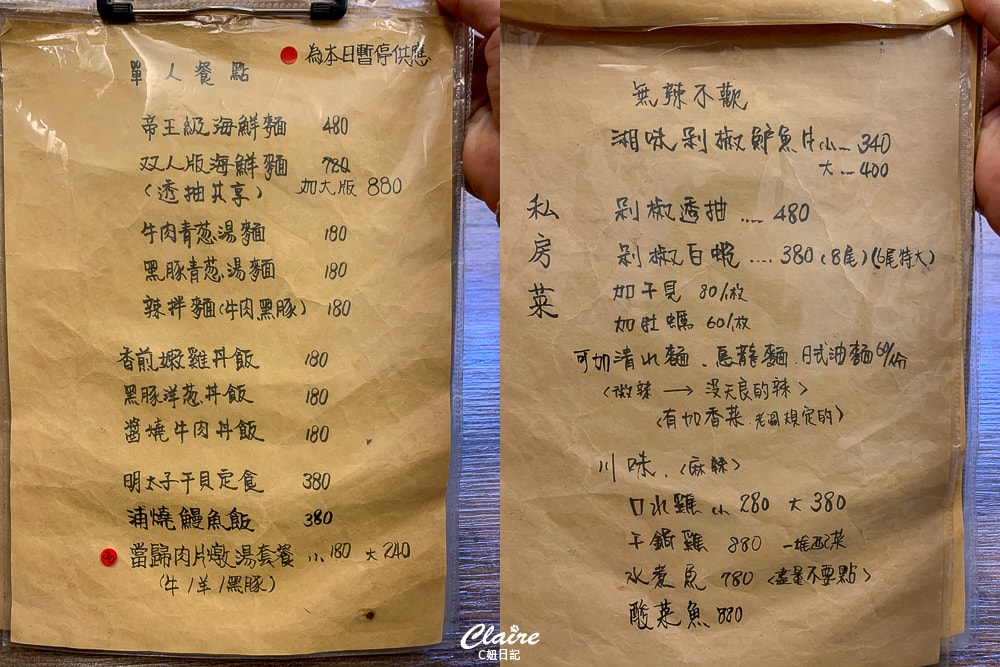 為本日暫停供應
單人餐點
帝王級海鮮麵 480
双人版海鮮麵 780
(透抽共享) 加大版 880
牛肉青葱湯麵 180
黑豚青葱湯麵 180
辣拌麵(牛肉黑豚) 180
香煎嫩雞丼飯 180
黑豚洋葱丼飯 180
醬燒牛肉丼飯 180
明太子干貝定食 380
浦燒鰻魚飯 380
當歸肉片燉湯套餐 小180 大240
(牛/羊/黑豚)
無辣不歡
湘味剁椒鱸魚片 小... 340
大 ... 400
私房菜
剁椒透抽 .... 480
剁椒白蝦 .... 380 (8尾) (6尾特大)
加干貝 80/枚
加牡蠣 60/枚
可加清水麵、烏龍麵、日式油麵 60/份
<微辣 → 沒天良的辣>
(有加香菜.老闆規定的)
川味.<麻辣>
口水雞 小 280 大 380
干鍋雞 880 一堆配菜
水煮魚 780 <盡量不要點>
酸菜魚 880
Claire
C妞日記